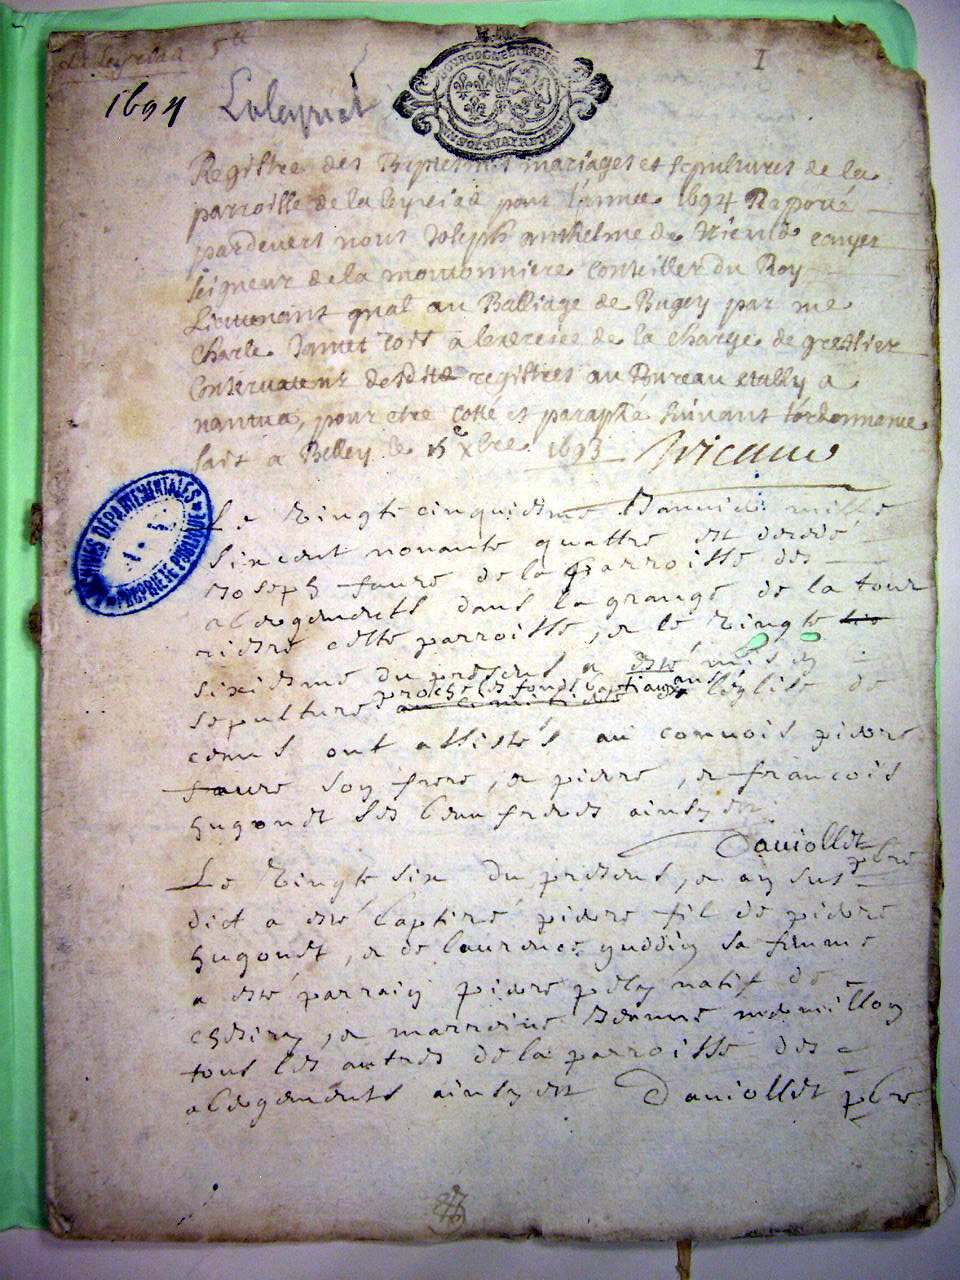 1694 Laleyriat
I
BOURGOGNE ET BRESSE
Registre des Baptesmes mariages et sepultures de la
parroisse de la leyriat pour l'annee 1694 Raporté
pardevers nous Joseph anthelme de escuyer
seigneur de la moutonniere Conseiller du Roy
Lieutenant gnal au Balliage de Bugey par me
Charle Jantet commis a lexercice de la charge de greffier
Conservateur desdits registres au Bureau estably a
nantua, pour etre cotté et paraphé suivant l'ordonnance
fait a Belley le 15e xbre 1693
ARCHIVES DEPARTEMENTALES
PROPRIETE PUBLIQUE
Le vingte cinquiesme Janvier mille
sixcent nonante quattre est decede
Joseph faure de la parroisse des
abergements dans la grange de la tour
riere cette parroisse, et le vingte
sixiesme du present a esté mis en
sepulture proche les fonds baptismaux dans l'église de
ceans ont assistés au convois pierre
faure son frere, et pierre, et francois
hugonet ses beaufreres ainsy est
Daviollet pbre
Le vingte six du present, et an sus
dict a esté baptisé pierre fil de pierre
hugonet, et de laurence guddin sa femme
a esté parrain pierre pély natif de
chesiry, et marreine Jeanne mermillon
tous les autres de la parroisse des
abergements ainsy est Daviollet pbre